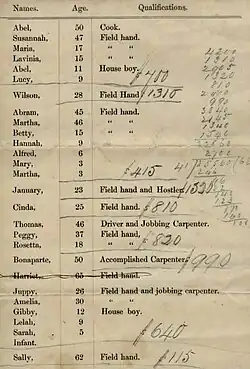 Names. Age. Qualifications.
Abel, 50 Cook.
Susannah, 47 Field hand.
Maria, 17 " "
Lavinia, 15 " "
Abel, 11 House boy.
Lucy, 9 $400
Wilson, 28 Field Hand $1310
Abram, 45 Field hand.
Martha, 46 " "
Betty, 15 " "
Hannah, 9
Alfred, 6
Mary, 3
Martha, 3 $415
January, 23 Field hand and Hostler, 1320
Cinda, 25 Field hand. $810
Thomas, 46 Driver and Jobbing Carpenter.
Peggy, 37 Field hand,
Rosetta, 18 " " $820
Bonaparte, 50 Accomplished Carpenter, $990
Harriet, 65 Field hand.
Juppy, 26 Field hand and jobbing carpenter.
Amelia, 30 " "
Gibby, 12 House boy.
Lelah, 9
Sarah, 5 $640
Infant.
Sally, 62 Field hand. $115